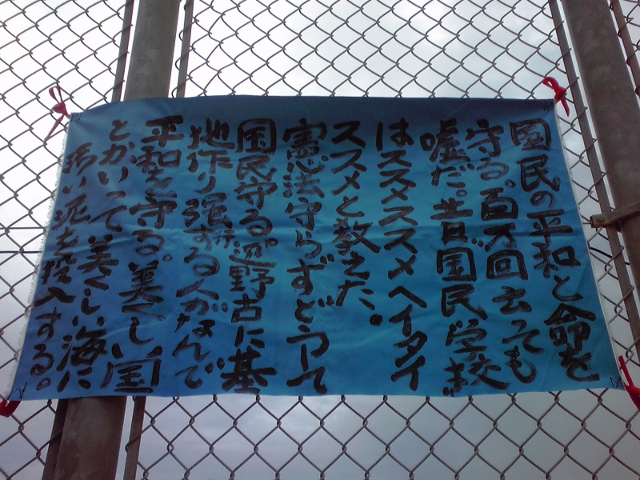 国民の平和と命を
守る。百万回云っても
嘘だ。昔国民学校
はススメススメヘイタイ
ススメと教えた。
憲法守らずどうして
国民守る。辺野古に基
地作り強行する人がなんで
平和を守る。美くしい国
とかいって美くしい海に
汚い泥を投入する。